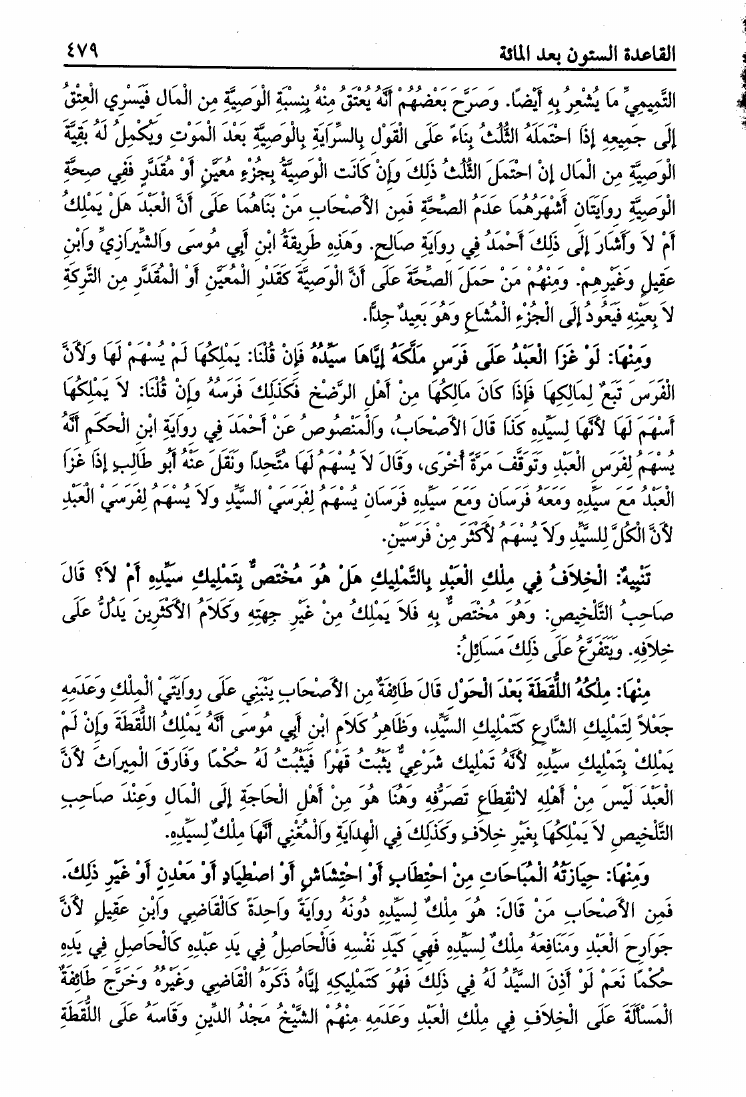 القاعدة الستون بعد المائة ٤٧٩
التَّمِيمِيِّ مَا يُشْعِرُ بِهِ أَيْضًا. وَصَرَّحَ بَعْضُهُمْ أَنَّهُ يُعْتَقُ مِنْهُ بِنِسْبَةِ الْوَصِيَّةِ مِن الْمَالِ فَيَسْرِي الْعِتْقُ
إلَى جَمِيعِهِ إذَا احْتَمَلَهُ الثُّلُثُ بِنَاءً عَلَى الْقَوْلِ بِالسِّرَايَةِ بِالْوَصِيَّةِ بَعْدَ الْمَوْتِ وَيَكْمِلُ لَهُ بَقِيَّةَ
الْوَصِيَّةِ مِن الْمَالِ إنْ احْتَمَلَ الثُّلُثُ ذَلِكَ وَإِنْ كَانَت الْوَصِيَّةُ بِجُزْءٍ مُعَيَّنٍ أَوْ مُقَدَّرٍ فَفِي صِحَّةِ
الْوَصِيَّةِ رِوَايَتَانِ أَشْهَرُهُمَا عَدَمُ الصِّحَّةِ فَمِن الأَصْحَابِ مَنْ بَنَاهُمَا عَلَى أَنَّ الْعَبْدَ هَلْ يَمْلِكُ
أَمْ لاَ وَأَشَارَ إلَى ذَلِكَ أَحْمَدُ فِي رِوَايَةِ صَالِحٍ. وَهَذِهِ طَرِيقَةُ ابْنِ أَبِي مُوسَى وَالشِّيرَازِيِّ وَابْنِ
عَقِيلٍ وَغَيْرِهِمْ. وَمِنْهُمْ مَنْ حَمَلَ الصِّحَّةَ عَلَى أَنَّ الْوَصِيَّةَ كَقَدْرِ الْمُعَيَّنِ أَوْ الْمُقَدَّرِ مِن التَّرِكَةِ
لاَ بِعَيْنِهِ فَيَعُودُ إلَى الْجُزْءِ الْمُشَاعِ وَهُوَ بَعِيدٌ جِدًّا.
وَمِنْهَا: لَوْ غَزَا الْعَبْدُ عَلَى فَرَسٍ مَلَّكَهُ إيَّاهَا سَيِّدُهُ فَإِنْ قُلْنَا: يَمْلِكُهَا لَمْ يُسْهَمْ لَهَا وَلأَنَّ
الْفَرَسَ تَبَعٌ لِمَالِكِهَا فَإِذَا كَانَ مَالِكُهَا مِنْ أَهْلِ الرَّضْخِ فَكَذَلِكَ فَرَسُهُ وَإِنْ قُلْنَا: لاَ يَمْلِكُهَا
أَسْهَمَ لَهَا لأَنَّهَا لِسَيِّدِهِ كَذَا قَالَ الأَصْحَابُ، وَالْمَنْصُوصُ عَنْ أَحْمَدَ فِي رِوَايَةِ ابْنِ الْحَكَمِ أَنَّهُ
يُسْهَمُ لِفَرَسِ الْعَبْدِ وَتَوَقَّفَ مَرَّةً أُخْرَى، وَقَالَ لاَ يُسْهَمُ لَهَا مُتَّحِدًا وَنَقَلَ عَنْهُ أَبُو طَالِبٍ إذَا غَزَا
الْعَبْدُ مَعَ سَيِّدِهِ وَمَعَهُ فَرَسَانِ وَمَعَ سَيِّدِهِ فَرَسَانِ يُسْهَمُ لِفَرَسَيْ السَّيِّدِ وَلاَ يُسْهَمُ لِفَرَسَيْ الْعَبْدِ
لأَنَّ الْكُلَّ لِلسَّيِّدِ وَلاَ يُسْهَمُ لأَكْثَرَ مِنْ فَرَسَيْنِ.
تَنْبِيهٌ: الْخِلاَفُ فِي مِلْكِ الْعَبْدِ بِالتَّمْلِيكِ هَلْ هُوَ مُخْتَصٌّ بِتَمْلِيكِ سَيِّدِهِ أَمْ لاَ؟ قَالَ
صَاحِبُ التَّلْخِيصِ: وَهُوَ مُخْتَصٌّ بِهِ فَلاَ يَمْلِكُ مِنْ غَيْرِ جِهَتِهِ وَكَلاَمُ الأَكْثَرِينَ يَدُلُّ عَلَى
خِلاَفِهِ. وَيَتَفَرَّعُ عَلَى ذَلِكَ مَسَائِلُ:
مِنْهَا: مِلْكُهُ اللُّقَطَةَ بَعْدَ الْحَوْلِ قَالَ طَائِفَةٌ مِن الأَصْحَابِ يَنْبَنِي عَلَى رِوَايَتَيْ الْمِلْكِ وَعَدَمِهِ
جَعْلاً لِتَمْلِيكِ الشَّارِعِ كَتَمْلِيكِ السَّيِّدِ، وَظَاهِرُ كَلاَمِ ابْنِ أَبِي مُوسَى أَنَّهُ يَمْلِكُ اللُّقَطَةَ وَإِنْ لَمْ
يَمْلِكْ بِتَمْلِيكِ سَيِّدِهِ لأَنَّهُ تَمْلِيكٌ شَرْعِيٌّ يَثْبُتُ قَهْرًا فَيَثْبُتُ لَهُ حُكْمًا وَفَارَقَ الْمِيرَاثَ لأَنَّ
الْعَبْدَ لَيْسَ مِنْ أَهْلِهِ لاِنْقِطَاعِ تَصَرُّفِهِ وَهُنَا هُوَ مِنْ أَهْلِ الْحَاجَةِ إلَى الْمَالِ وَعِنْدَ صَاحِبِ
التَّلْخِيصِ لاَ يَمْلِكُهَا بِغَيْرِ خِلاَفٍ وَكَذَلِكَ فِي الْهِدَايَةِ وَالْمُغْنِي أَنَّهَا مِلْكٌ لِسَيِّدِهِ.
وَمِنْهَا: حِيَازَتُهُ الْمُبَاحَاتِ مِنْ احْتِطَابٍ أَوْ احْتِشَاشٍ أَوْ اصْطِيَادٍ أَوْ مَعْدِنٍ أَوْ غَيْرِ ذَلِكَ.
فَمِن الأَصْحَابِ مَنْ قَالَ: هُوَ مِلْكٌ لِسَيِّدِهِ دُونَهُ رِوَايَةً وَاحِدَةً كَالْقَاضِي وَابْنِ عَقِيلٍ لأَنَّ
جَوَارِحَ الْعَبْدِ وَمَنَافِعَهُ مِلْكٌ لِسَيِّدِهِ فَهِيَ كَيَدِ نَفْسِهِ فَالْحَاصِلُ فِي يَدِ عَبْدِهِ كَالْحَاصِلِ فِي يَدِهِ
حُكْمًا نَعَمْ لَوْ أَذِنَ السَّيِّدُ لَهُ فِي ذَلِكَ فَهُوَ كَتَمْلِيكِهِ إيَّاهُ ذَكَرَهُ الْقَاضِي وَغَيْرُهُ وَخَرَّجَ طَائِفَةٌ
الْمَسْأَلَةَ عَلَى الْخِلاَفِ فِي مِلْكِ الْعَبْدِ وَعَدَمِهِ مِنْهُمْ الشَّيْخُ مَجْدُ الدِّينِ وَقَاسَهُ عَلَى اللُّقَطَةِ